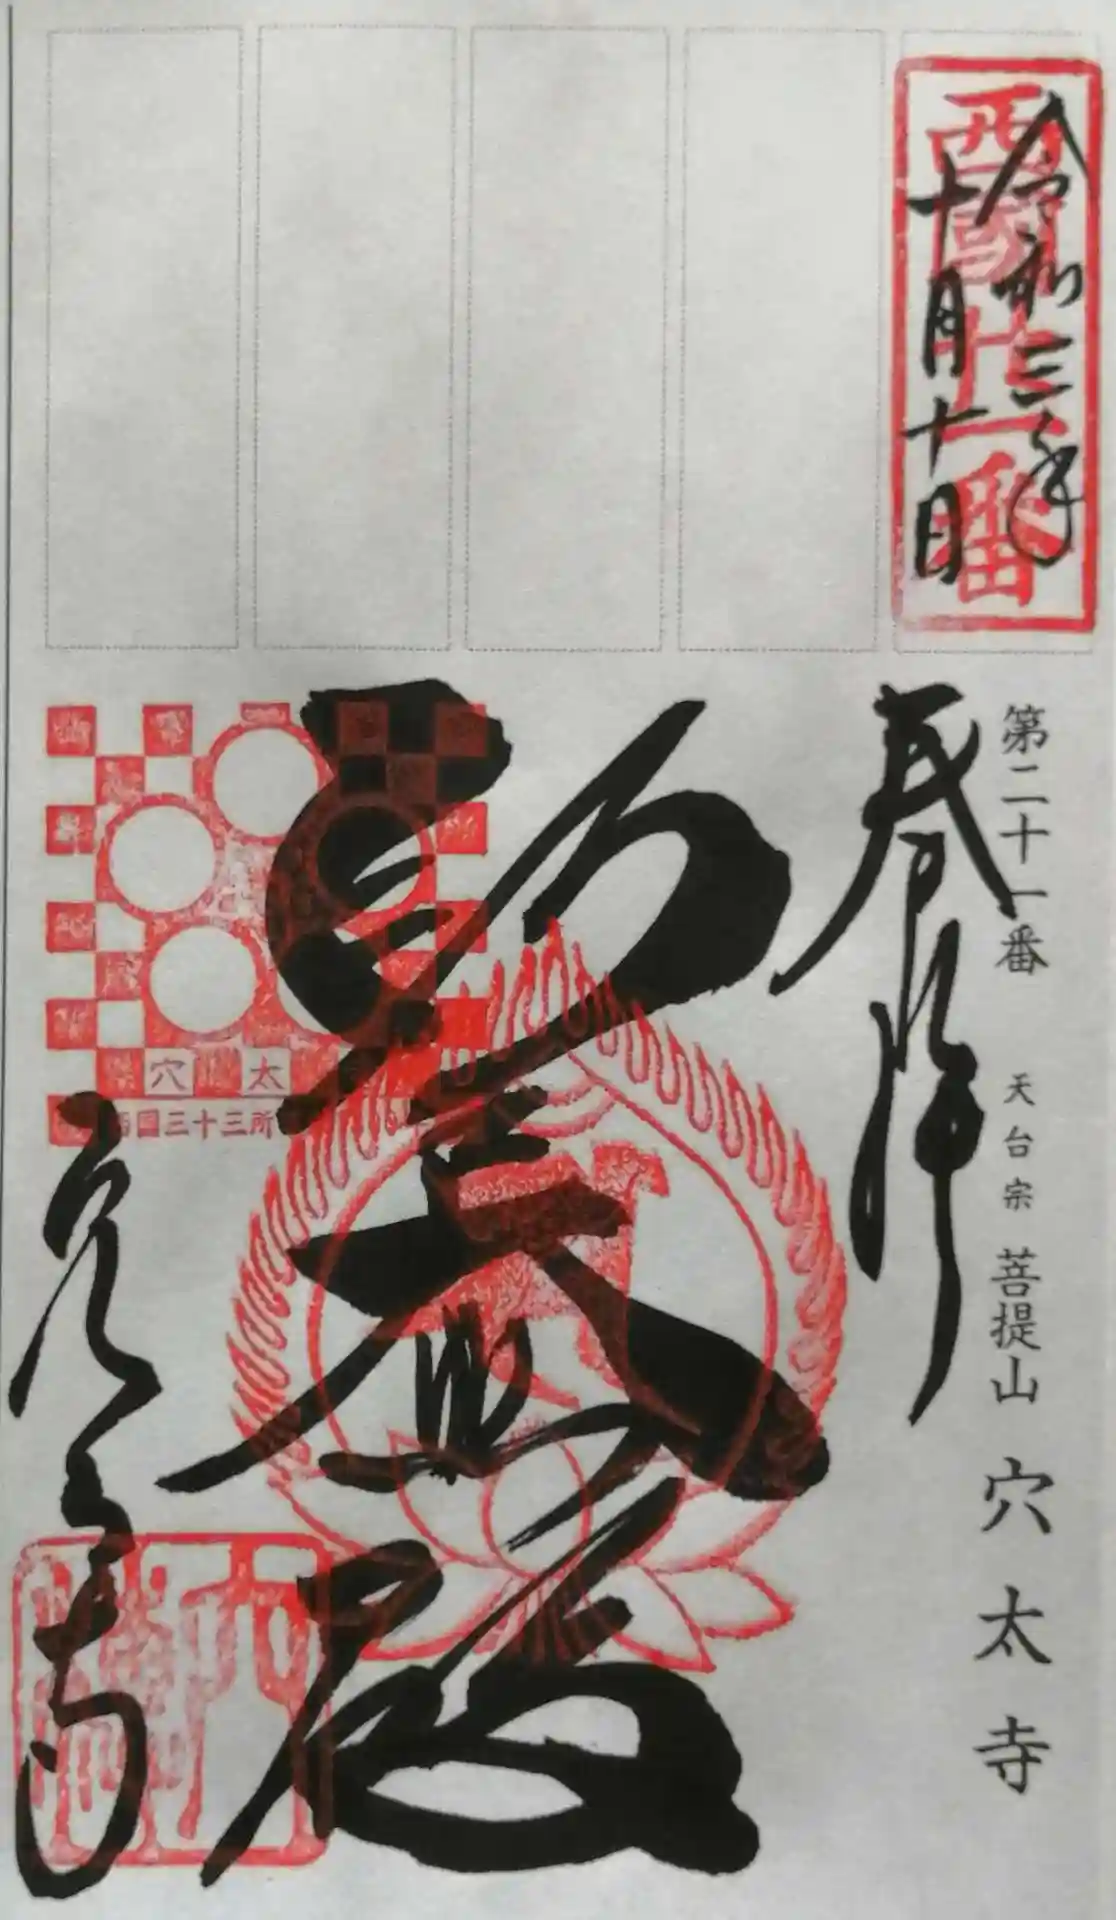 西國廿一番
令和三年
十月十日
第二十一番 天台宗 菩提山 穴太寺
奉拝
聖大悲殿
穴太寺
穴太
西国三十三所